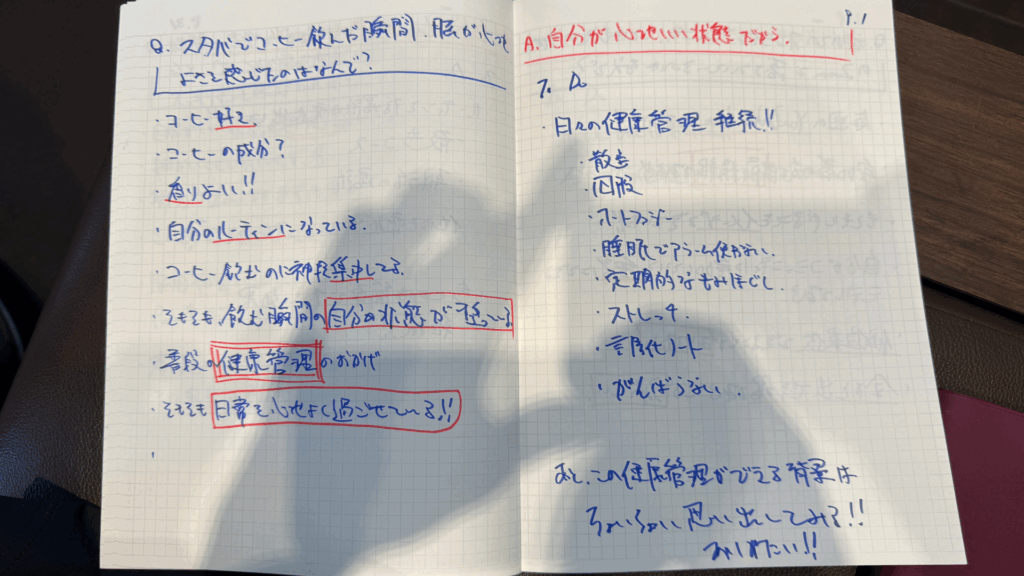 Q. スタバでコーヒー飲んだ瞬間、脳が心地
よさを感じたのはなんで?
・コーヒー好き
・コーヒーの成分?
・香りよい!!
・自分のルーティンになっている.
・コーヒー飲むのに神経集中してる.
・そもそも、飲む瞬間の自分の状態が整っている
・普段の健康管理のおかげ
・そもそも日常を心地よく過ごせている!!
9.1
A. 自分が心地いい状態だから.
・日々の健康管理 継続!!
・散歩
・オートファジー
・睡眠でアラーム使わない.
・定期的なもみほぐし.
・ストレッチ.
・言語化ノート
・がんばらない.
あと、この健康管理ができる背景は
ちょいちょい思い出してみる!!